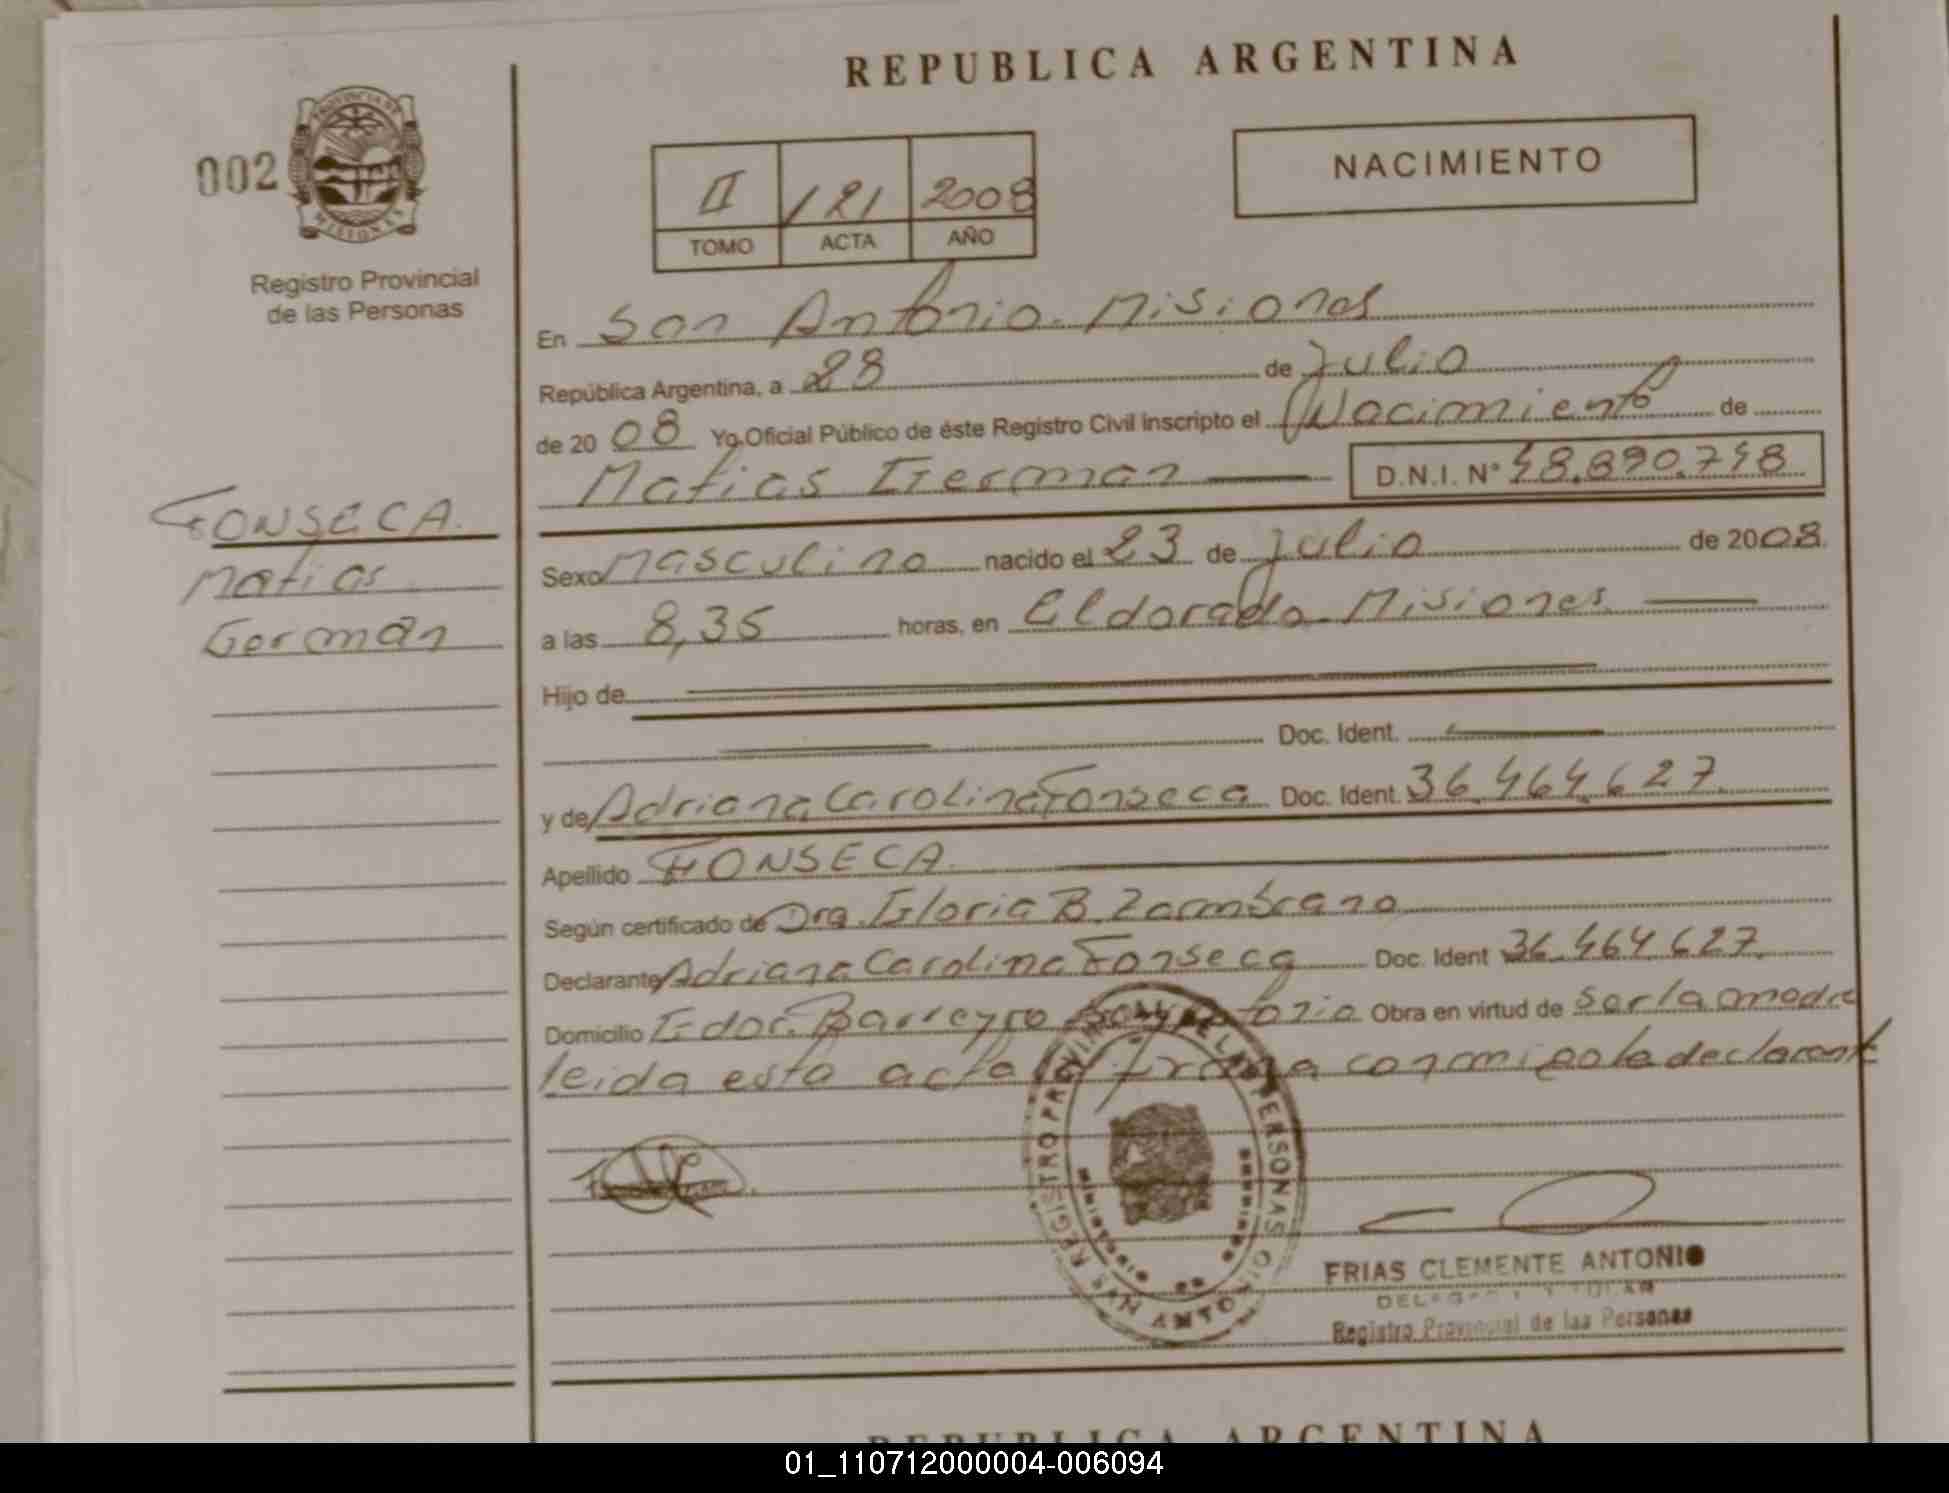 REPUBLICA ARGENTINA
002
PROVINCIA DE
MISIONES
Registro Provincial
de las Personas
II 121 2008
TOMO ACTA AÑO
NACIMIENTO
En San Antonio. Misiones
República Argentina, a 28 de julio
de 2008 Yo, Oficial Público de éste Registro Civil inscripto el Nacimiento de
Matias German D.N.I. N° 48.890.748
FONSECA.
Matias
Germán
Sexo Masculino nacido el 23 de julio de 2008.
a las 8,35 horas, en Eldorado. Misiones
Hijo de
Doc. Ident.
y de Adriana Carolina Fonseca Doc. Ident. 36.464.627.
Apellido FONSECA.
Según certificado de Dra. Gloria B. Zambrano
Declarante Adriana Carolina Fonseca Doc. Ident 36.464.627.
Domicilio Gdor. Barreyro Obra en virtud de ser la madre
leida esta acta la firma conmigo la declarante
REGISTRO PROVINCIAL DE LAS PERSONAS
MISIONES
SAN ANTONIO
FRIAS CLEMENTE ANTONIO
Registro Provincial de las Personas
REPUBLICA ARGENTINA
01_110712000004-006094